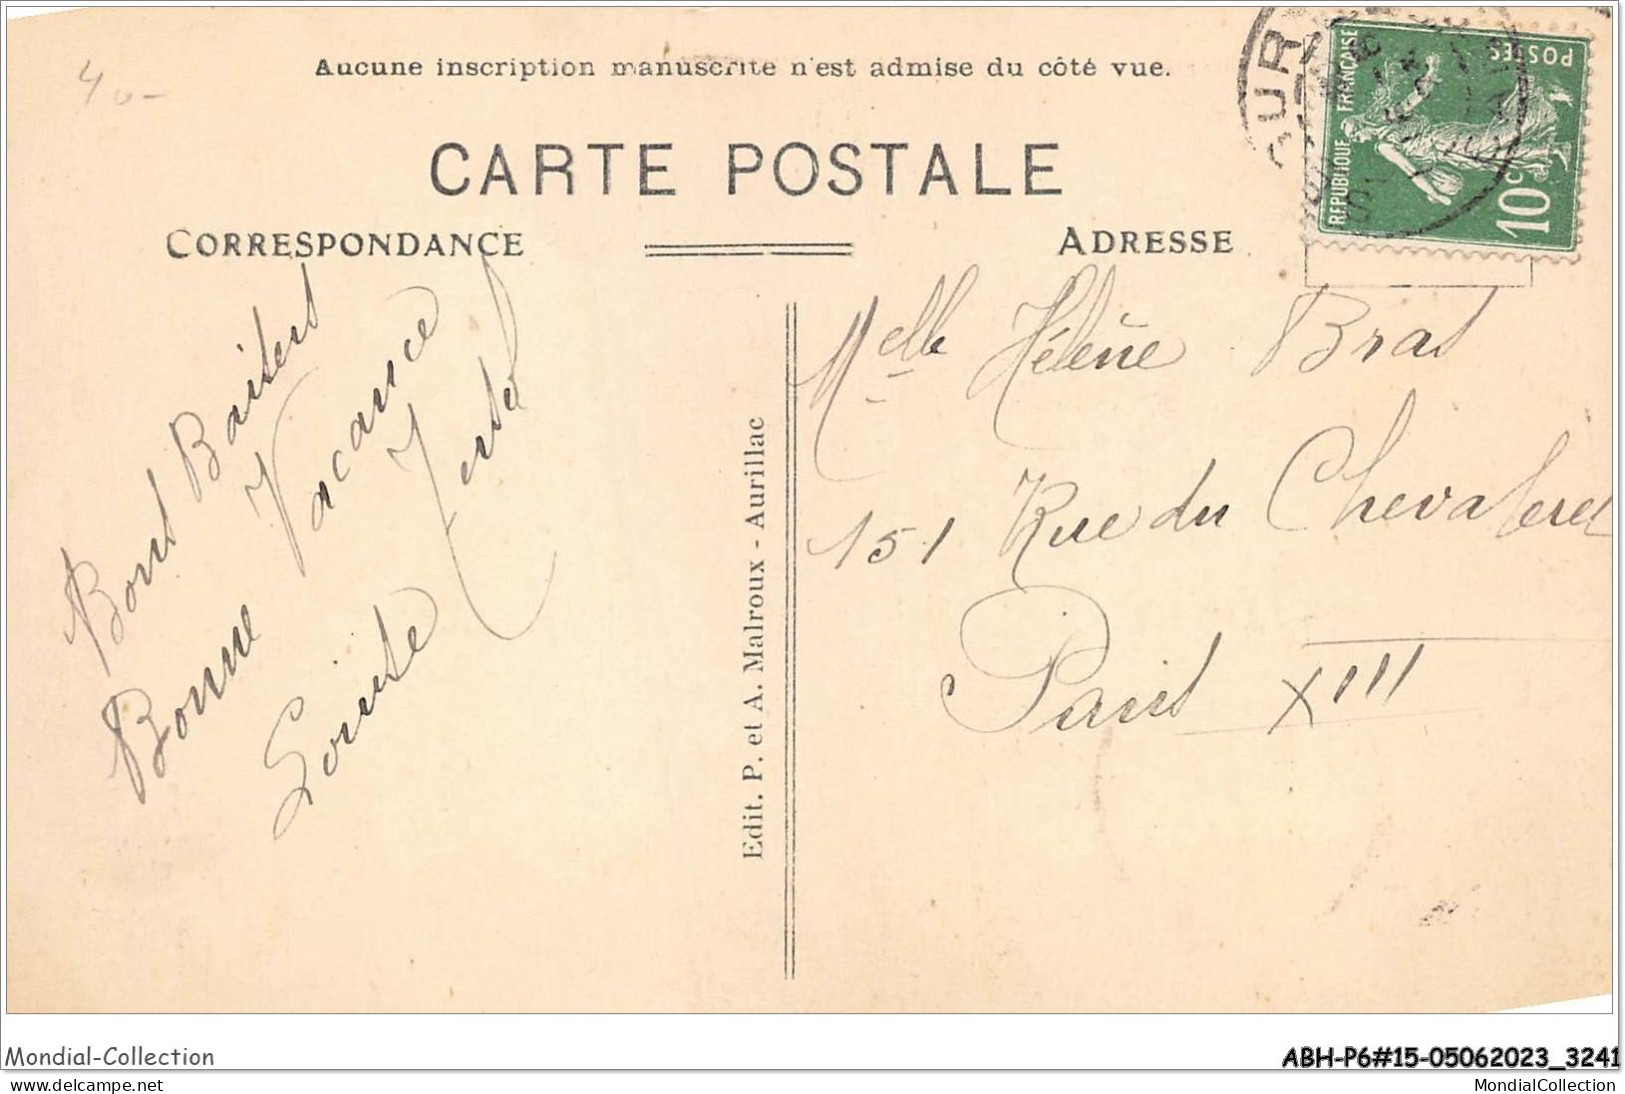 40-
Aucune inscription manuscrite n'est admise du côté vue.
CARTE POSTALE
CORRESPONDANCE
ADRESSE
REPUBLIQUE FRANÇAISE
POSTES
10c
Bons Baisers
Bonne Vacance
Louise
Melle Hélène Bras
151 Rue du Chevaleret
Paris XIII
Edit. P. et A. Malroux - Aurillac
Mondial-Collection
ABH-P6#15-05062023_3241
www.delcampe.net
MondialCollection